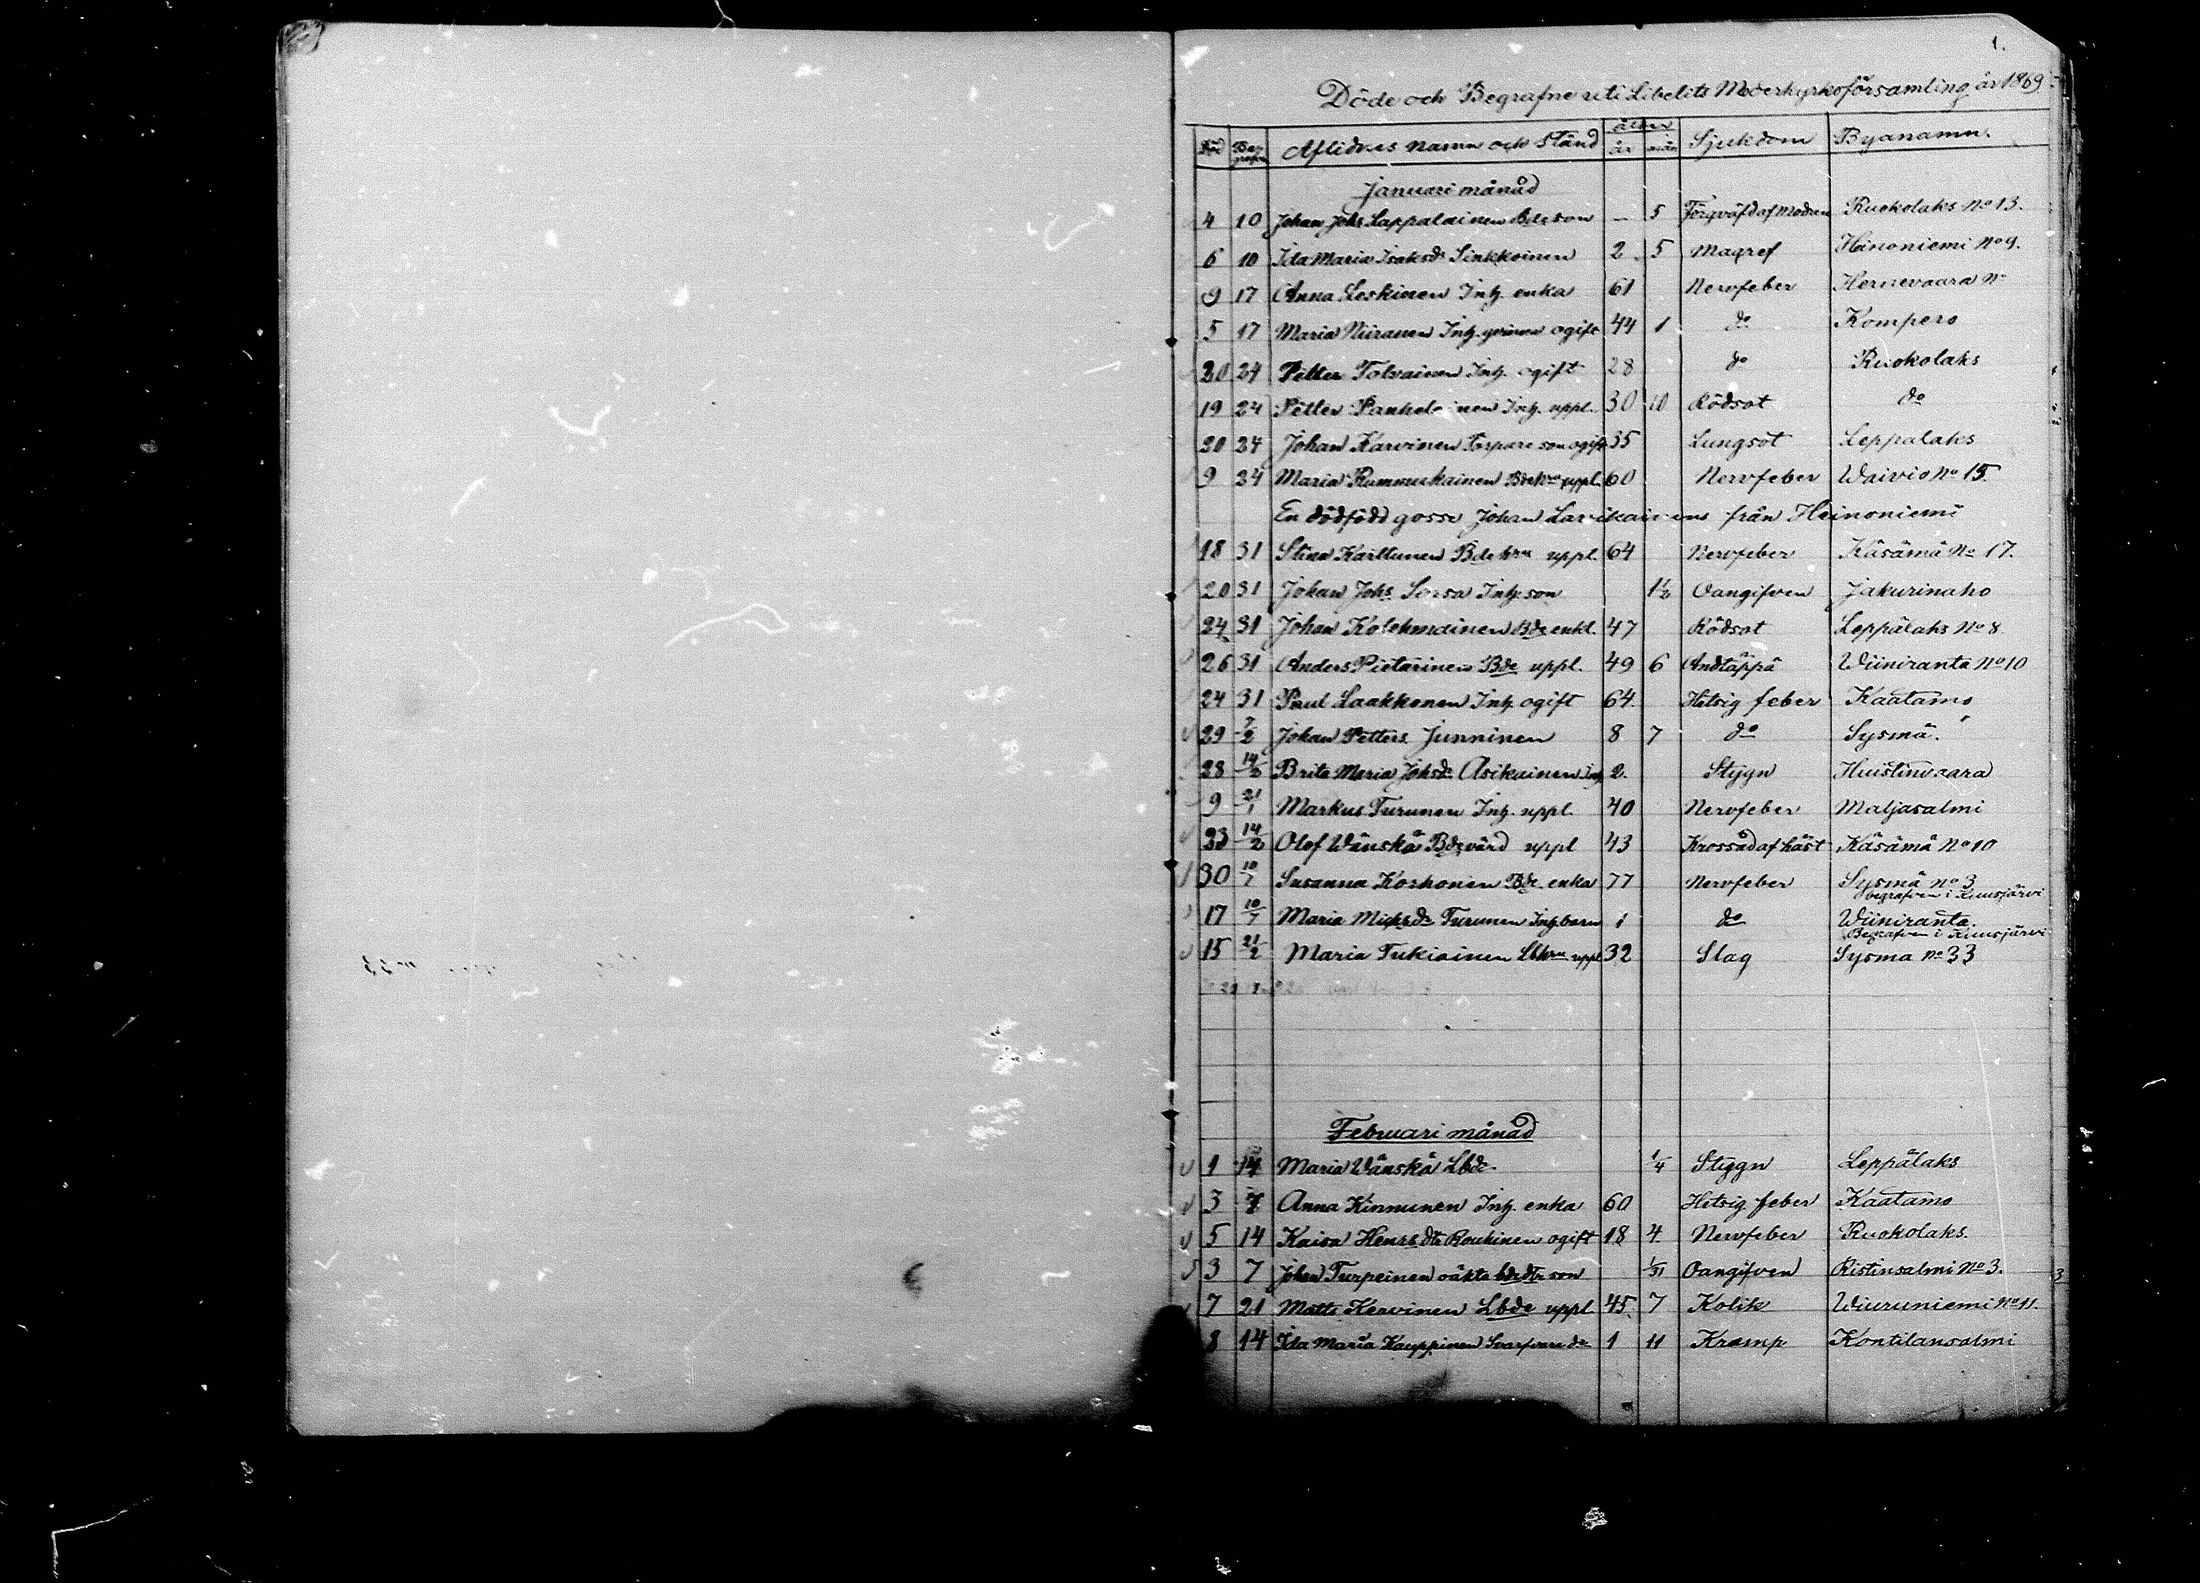 1.
Döde och Begrafne uti Libelits Moderkyrkoförsamling år 1869
Död Begrafn Aflidnes namn och Stånd ålder år mån Sjukdom Byanamn.
Januari månad
4 10 Johan Johs Lappalainen Bdeson — 5 Förqväfd af Modren Ruokolaks No 13.
6 10 Ida Maria Isaksdr Sinkkoinen 2 5 Magref Heinoniemi No 9.
9 17 Anna Leskinen Inh. enka 61 Nervfeber Hernevaara No
5 17 Maria Niiranen Inh. qvinna ogift 44 1 do Kompero
20 24 Petter Tolvainen Inh. ogift 28 do Ruokolaks
19 24 Petter Inh. uppl. 30 10 Rödsot do
20 24 Johan Karvinen Torpare son ogift 35 Lungsot Leppälaks
9 24 Maria Rummukainen Bdehru uppl. 60 Nervfeber Waivio No 15.
En dödfödd gosse Johan från Heinoniemi
18 31 Stina Karttunen Bdehru uppl. 64 Nervfeber Käsämä No 17.
20 31 Johan Johs Sorsa Inh. son 1½ Oangifven Jakurinaho
24 31 Johan Kolehmainen Bde enkl. 47 Rödsot Leppälaks No 8.
26 31 Anders Pietarinen Bde uppl. 49 6 Andtäppa Wiiniranta No 10
24 31 Paul Laakkonen Inh. ogift 64. Hetsig feber Kaatamo
29 7/2 Johan Petters. Junninen 8 7 do Sysmä.
28 14/2 Brita Maria Johsdr Asikainen Inh 2. Stygn Huistinvaara
9 21/1 Markus Turunen Inh. uppl. 40 Nervfeber Maljasalmi
23 14/2 Olof Wänskä Bdevärd uppl 43 Krossad af häst Käsämä No 10
30 10/7 Susanna Korhonen Bde enka 77 Nervfeber Sysmä No 3
begrafven i Kuusjärvi
17 10/7 Maria Michsdr Turunen Inh. barn 1 do Wiiniranta.
Begrafven i Kuusjärvi
15 21/2 Maria Tukiainen Lbhru uppl 32 Slag Sysmä No 33
Februari månad
1 14 Maria Wänskä Lbde. 1/4 Stygn Leppälaks
3 7 Anna Kinnunen Inh. enka 60 Hetsig feber Kaatamo
5 14 Kaisa Henrs dtr Rouhinen ogift 18 4 Nervfeber Ruokolaks.
3 7 Johan Turpeinen oäkta bde dtr son 1/31 Oangifven Ristinsalmi No 3.
7 21 Matts Kervinen Lbde uppl 45. 7 Kolik Wiuruniemi No 11.
8 14 Ida Maria Kauppinen Svarfvare dr 1 11 Kramp Kontilansalmi
3